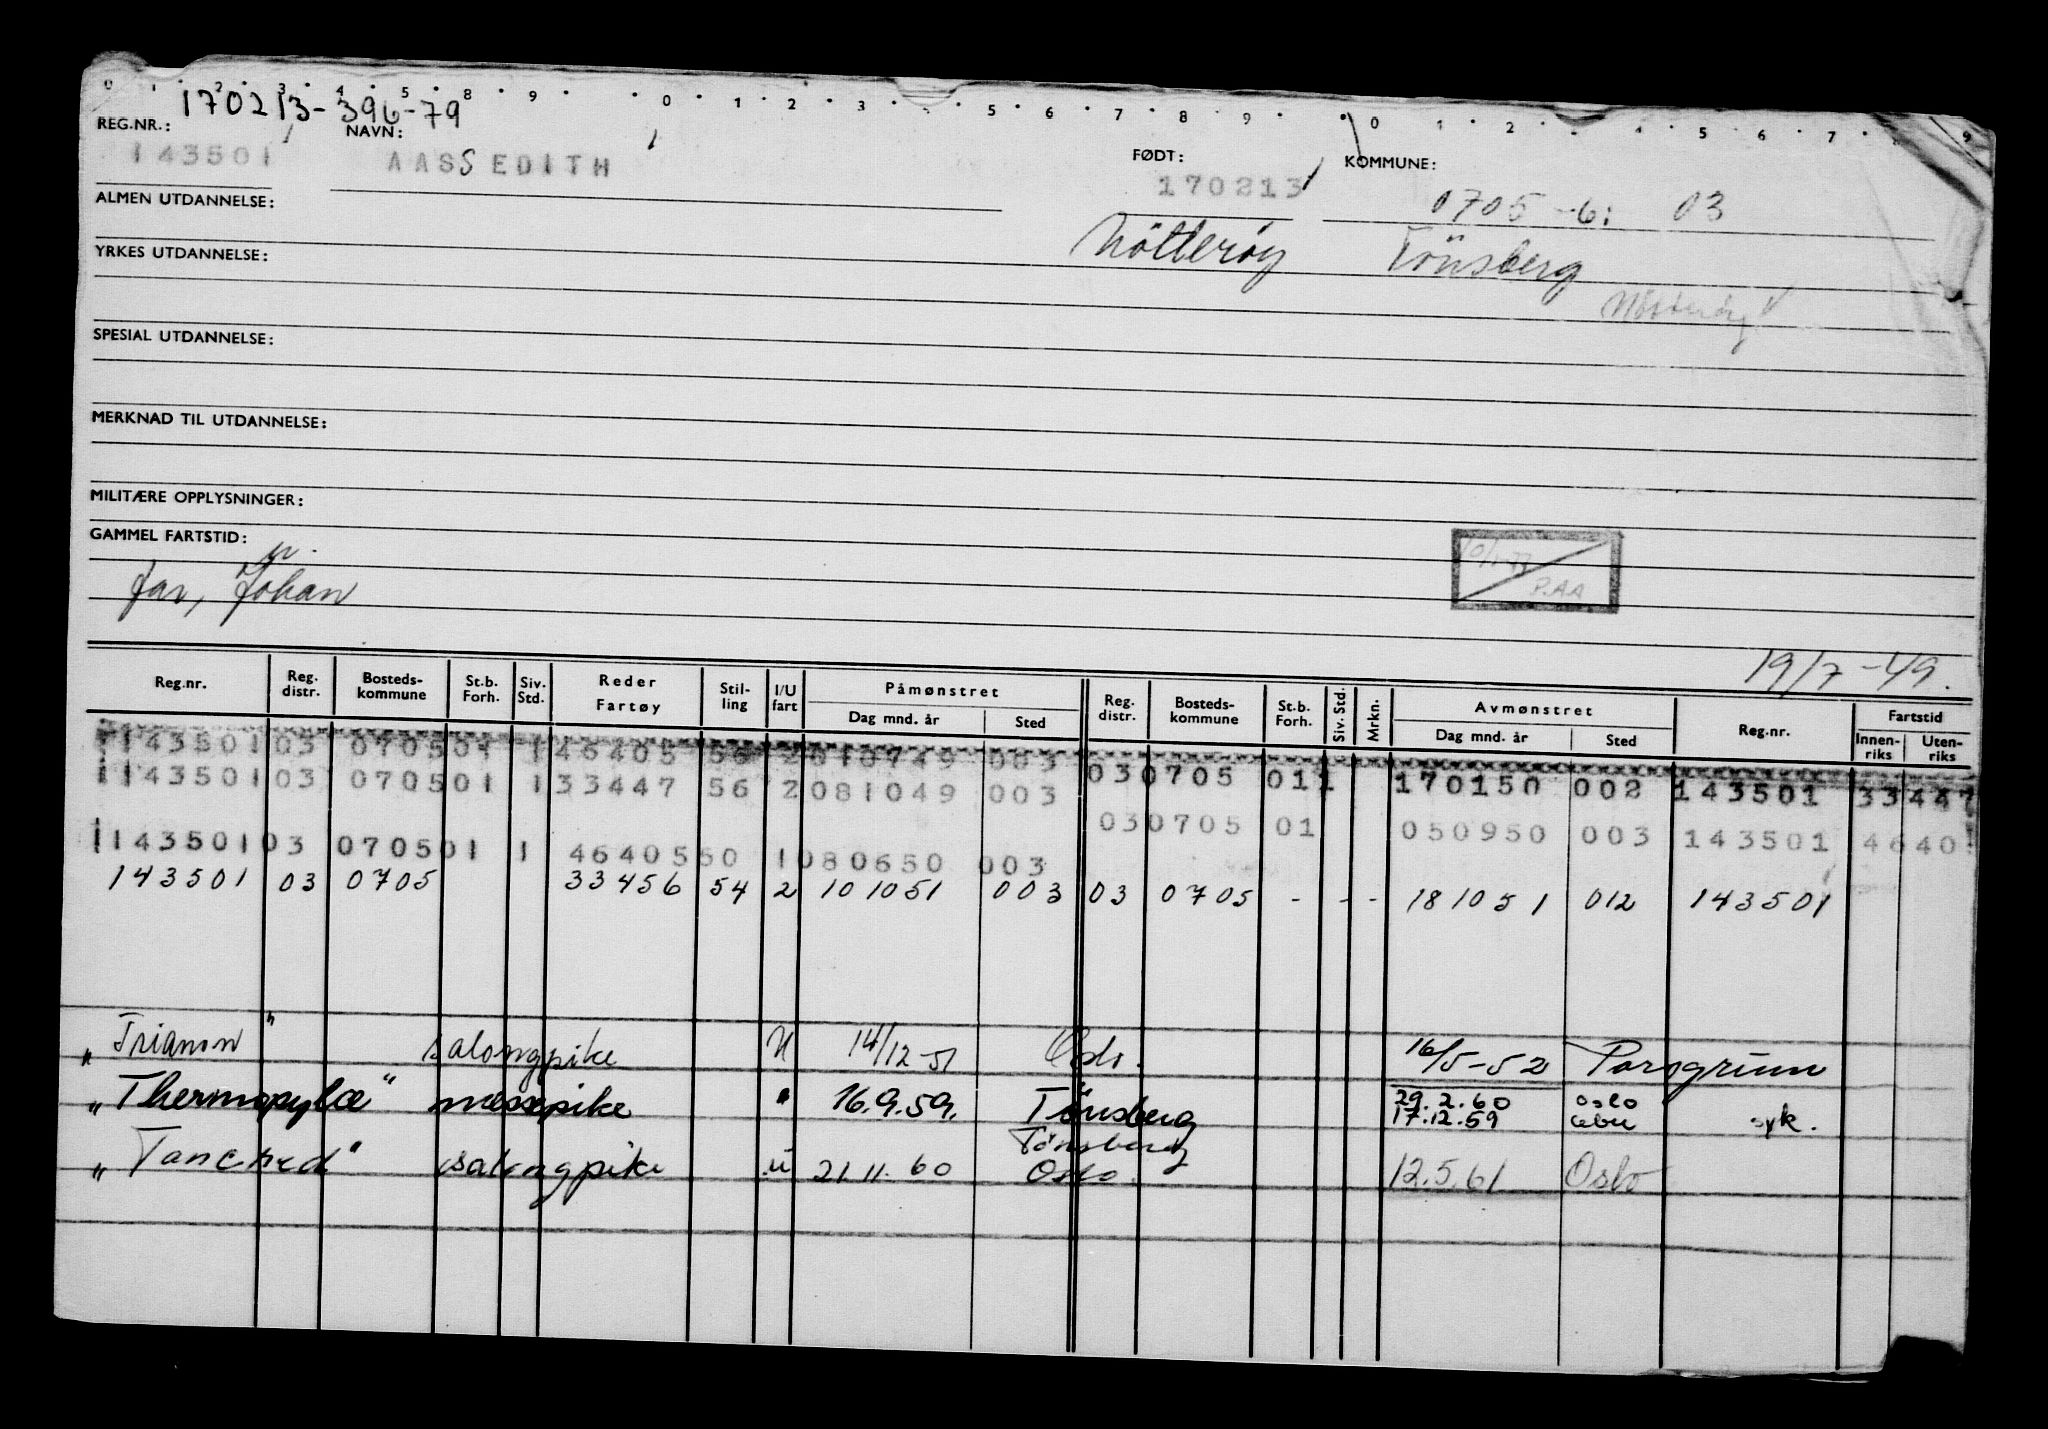 0 . 2 3 . 4 . 5 . 8 . 9 . . 0 . 1 . 2 . 3 . . 5 . 6 . 7 . 8 . 9 . . 0 . 1 . 2 . . 4 . 5 . 6 . 7 . . 9
170213-396-79
REG.NR.: NAVN: FØDT: KOMMUNE:
143501 AASS EDITH 170213 0705-6: 03
ALMEN UTDANNELSE:
Nötterøy Tönsberg
YRKES UTDANNELSE:
Nötterøy
SPESIAL UTDANNELSE:
MERKNAD TIL UTDANNELSE:
MILITÆRE OPPLYSNINGER:
GAMMEL FARTSTID:
far, Johan
P.AA
19/7-49.
Reg.nr. Reg. distr. Bosteds-kommune St.b. Forh. Siv. Std. Reder Fartøy Stil-ling I/U fart Påmønstret Dag mnd. år Sted Reg. distr. Bosteds-kommune St.b. Forh. Siv. Std. Mrkn. Avmønstret Dag mnd. år Sted Reg.nr. Fartstid Innen-riks Uten-riks
1143501 03 070501 1 46405 56 2 010749 003
1143501 03 070501 1 33447 56 2 081049 003 03 0705 01 1 170150 002 143501 33447
03 0705 01 050950 003 143501 4640
1143501 03 070501 1 46405 50 1 080650 003
143501 03 0705 33456 54 2 101051 003 03 0705 - - - 181051 012 143501
"Trianon" salongpike U 14/12-51 Oslo. 16/5-52 Porsgrunn
"Thermopylæ" messepike " 16.9.59. Tönsberg 29.2.60 Oslo
17.12.59 Cebu syk.
Tønsberg
"Tancred" salongpike u 21.11.60 Oslo. 12.5.61 Oslo